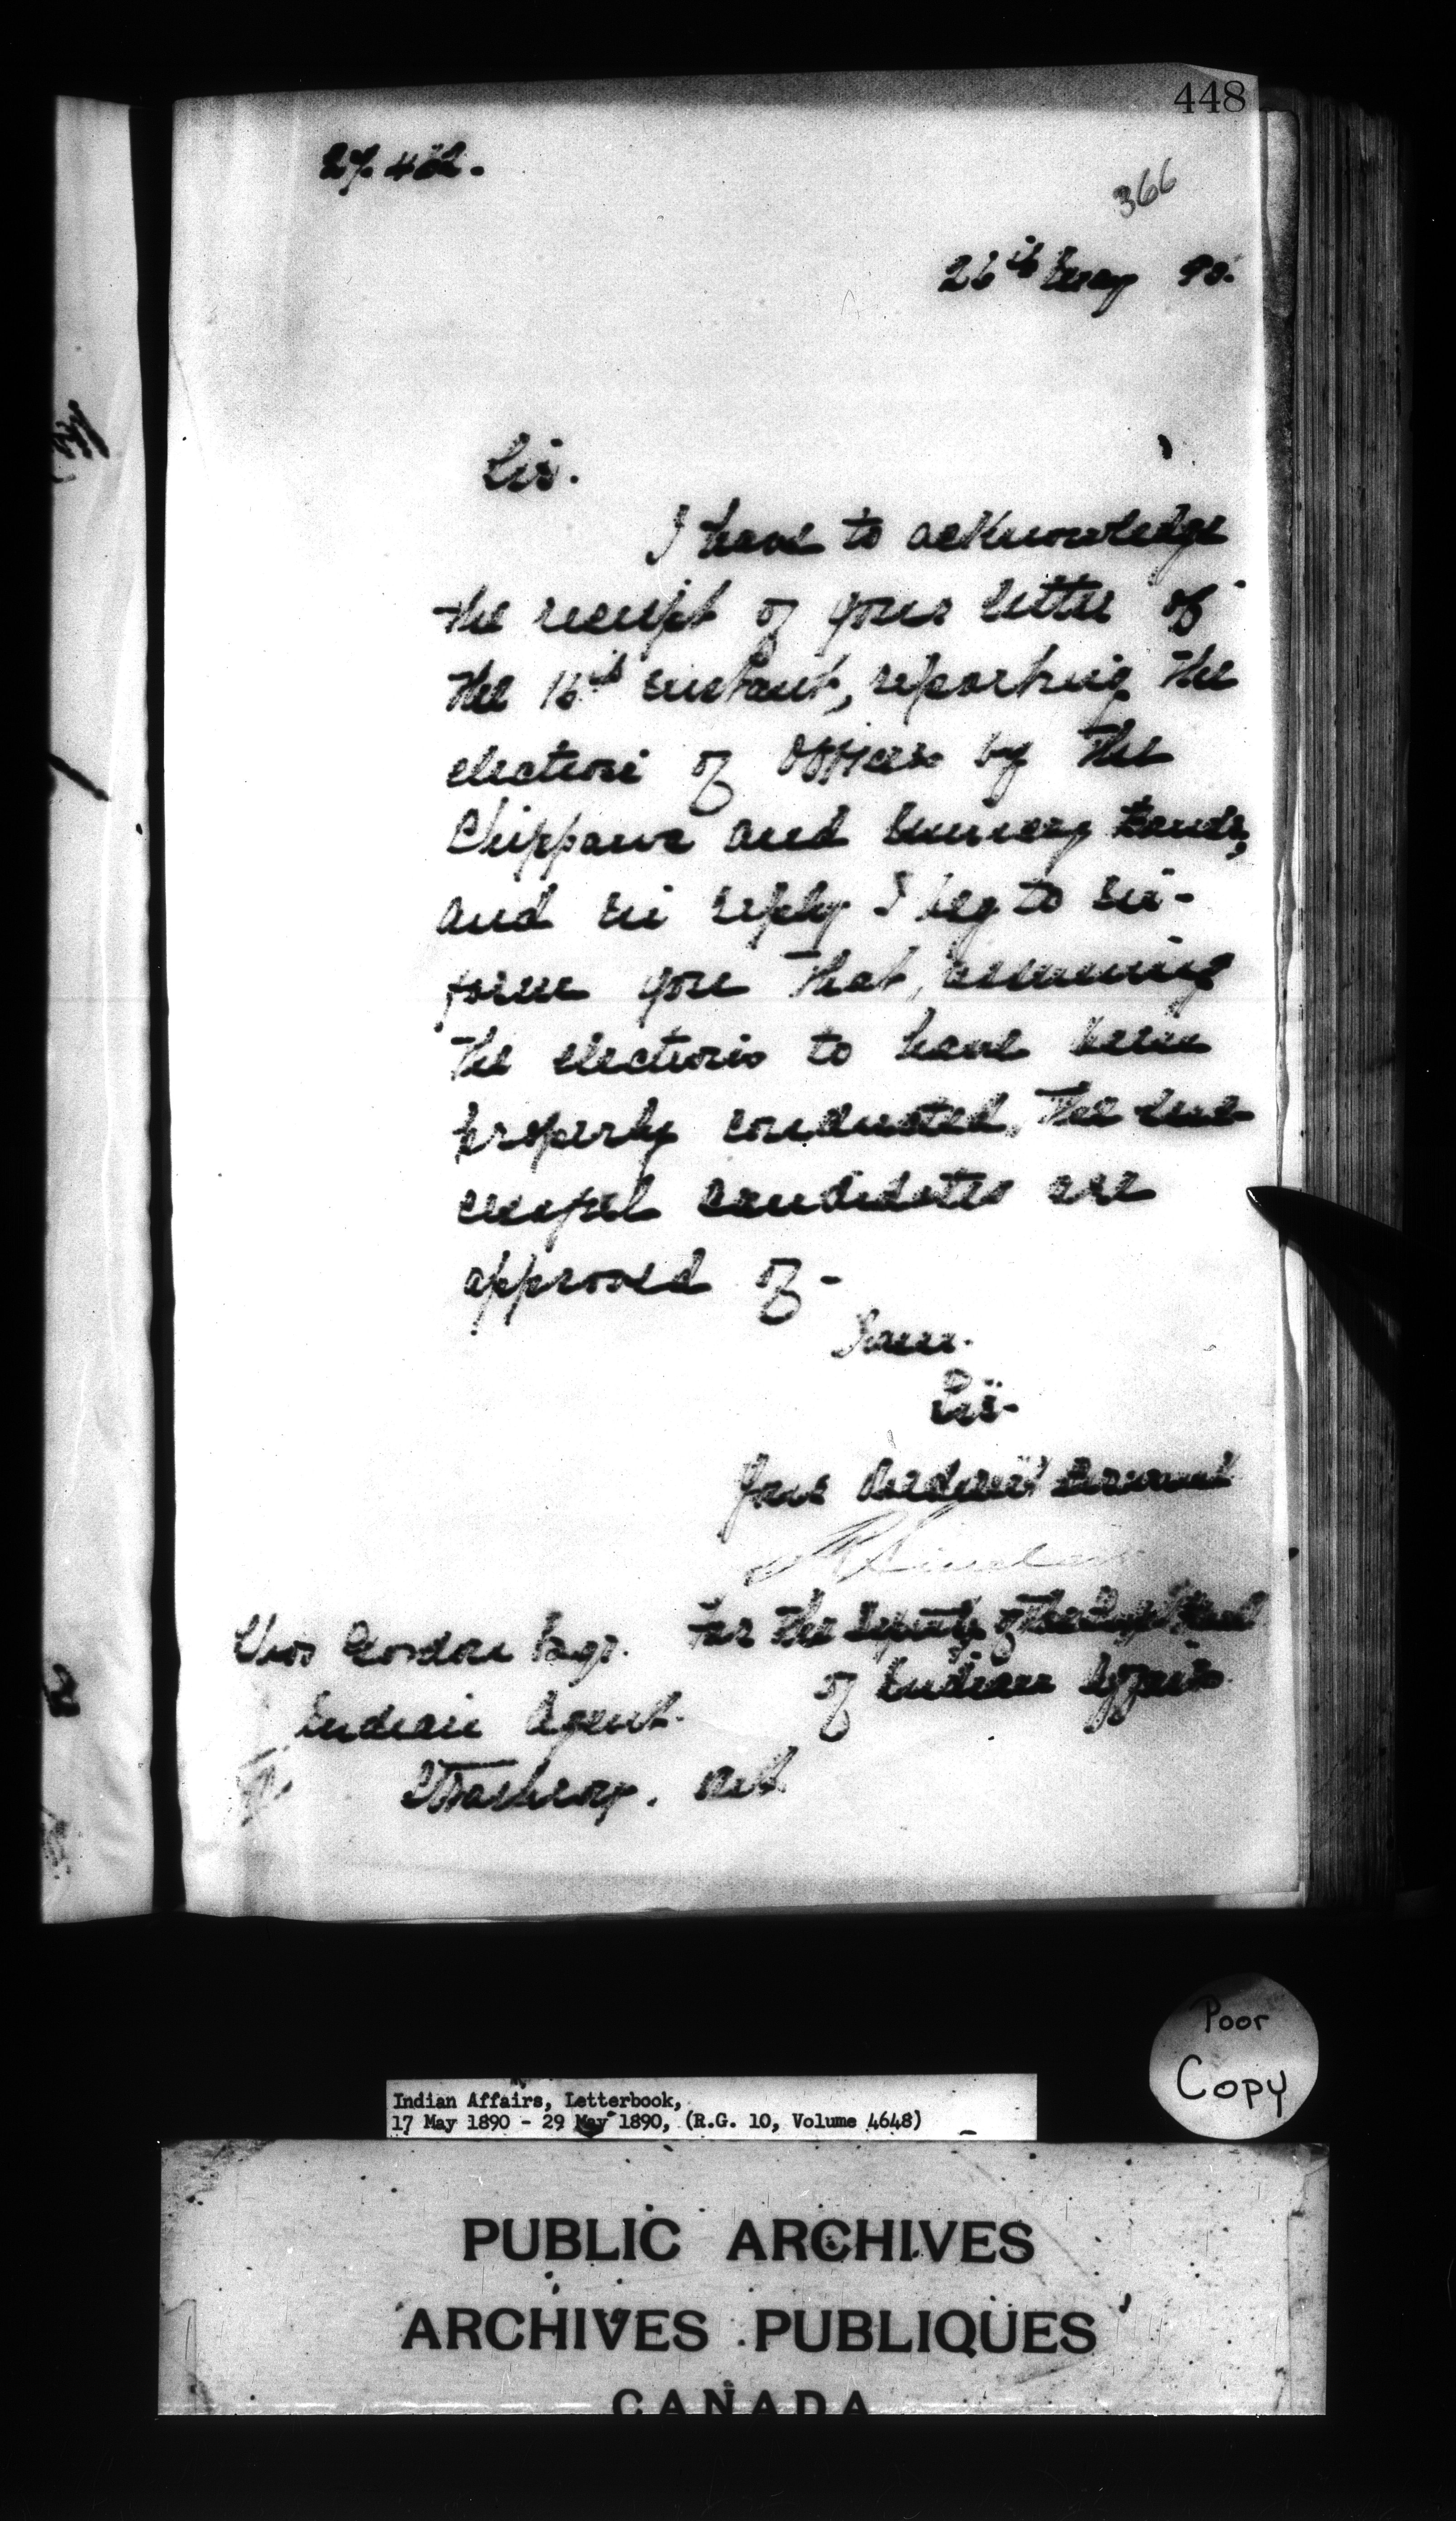 448
366
26th May 90.
Sir.
I have to acknowledge
the receipt of your letter of
the 15th instant, reporting the
election of Officers by the
Chippawa and Munsey bands,
and in reply I beg to in-
form you that, assuming
the elections to have been
properly conducted, the suc
cessful candidates are
approved of -
I am.
Sir.
Your obedient servant
R Sinclair
For the Deputy of the Supt Genl
of Indian Affairs.
Thos Gordon Esqr.
Indian Agent.
Strathroy. Ont.
Poor
Copy
Indian Affairs, Letterbook,
17 May 1890 - 29 May 1890, (R.G. 10, Volume 4648)
PUBLIC ARCHIVES
ARCHIVES PUBLIQUES
CANADA